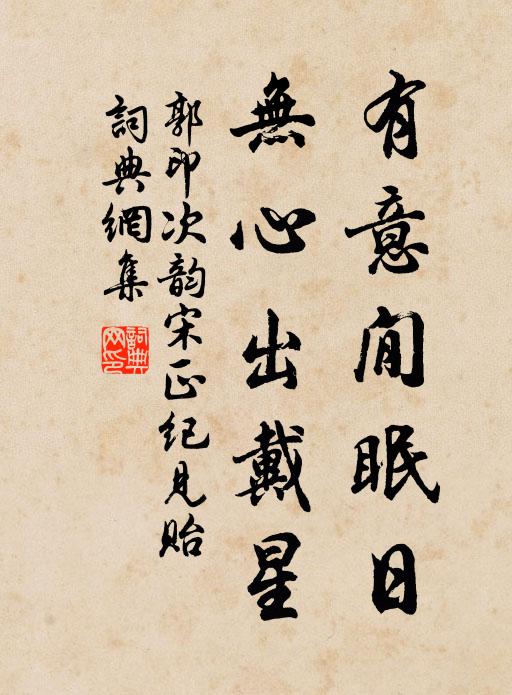 有意閒眠日
無心出戴星
郭印次韵宋正紀見貽
詞典網集
詞典網印